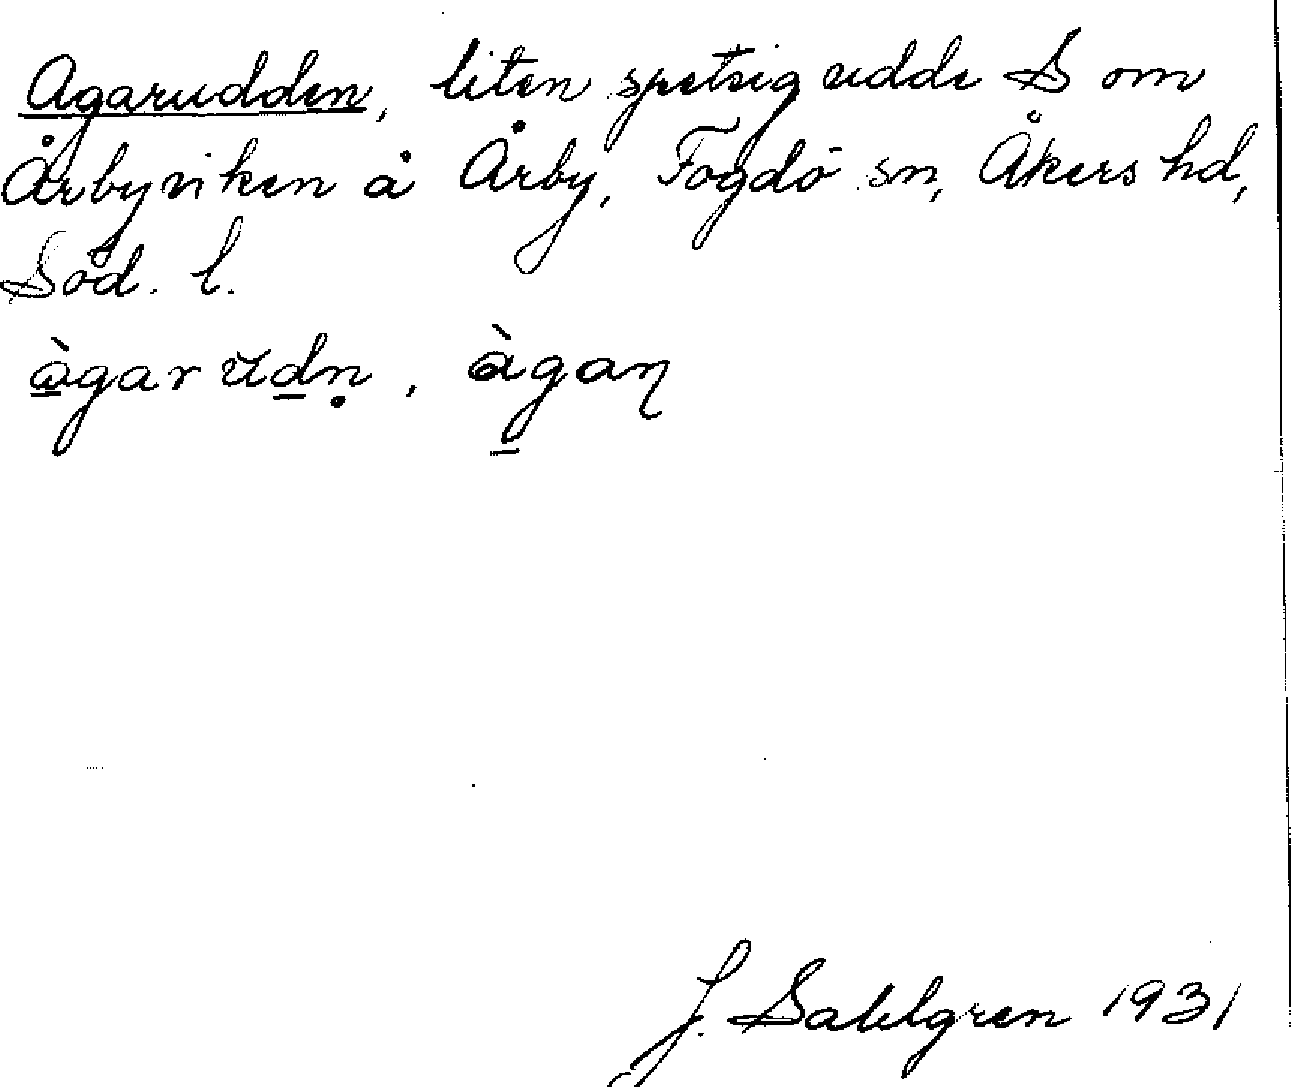 Agarudden, liten spetsig udde S om
Årbyviken å Årby, Fogdö sn, Åkers hd,
Söd. l.
àgar ŭdn̥, àgaɳ
J. Sahlgren 1931